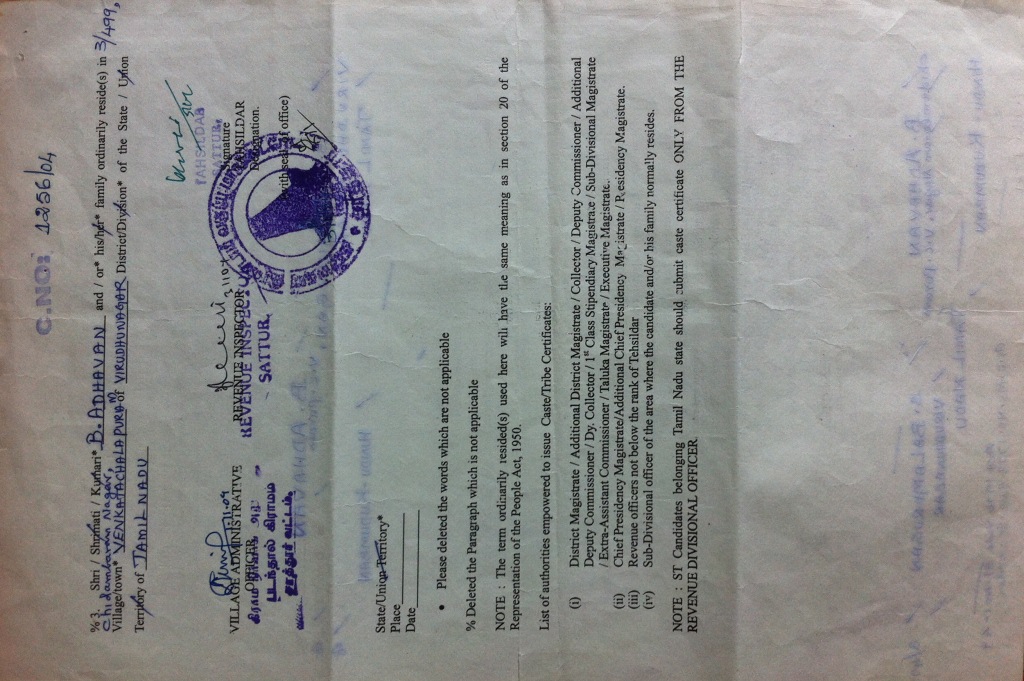 C.NO: 1256/04
%3. Shri / Shrimati / Kumari* B. ADHAVAN and / or* his/her* family ordinarily reside(s) in 3/499,
Chidambaram Nagar,
Village/town* VENKATACHALAPURAM of VIRUDHUNAGAR District/Division* of the State / Union
Territory of TAMIL NADU
VILLAGE ADMINISTRATIVE
OFFICER
REVENUE INSPECTOR
REVENUE INSPECTOR
SATTUR
TAHSILDAR
SATTUR
Signature
TAHSILDAR
Designation.
(with seal of office)
State/Union Territory*
Place
Date
• Please deleted the words which are not applicable
% Deleted the Paragraph which is not applicable
NOTE : The term ordinarily resided(s) used here will have the same meaning as in section 20 of the
Representation of the People Act, 1950.
List of authorities empowered to issue Caste/Tribe Certificates:
(i) District Magistrate / Additional District Magistrate / Collector / Deputy Commissioner / Additional
Deputy Commissioner / Dy. Collector / 1st Class Stipendiary Magistrate / Sub-Divisional Magistrate
/ Extra-Assistant Commissioner / Taluka Magistrate / Executive Magistrate.
(ii) Chief Presidency Magistrate/Additional Chief Presidency Magistrate / Presidency Magistrate.
(iii) Revenue officers not below the rank of Tehsildar
(iv) Sub-Divisional officer of the area where the candidate and/or his family normally resides.
NOTE : ST Candidates belonging Tamil Nadu state should submit caste certificate ONLY FROM THE
REVENUE DIVISIONAL OFFICER